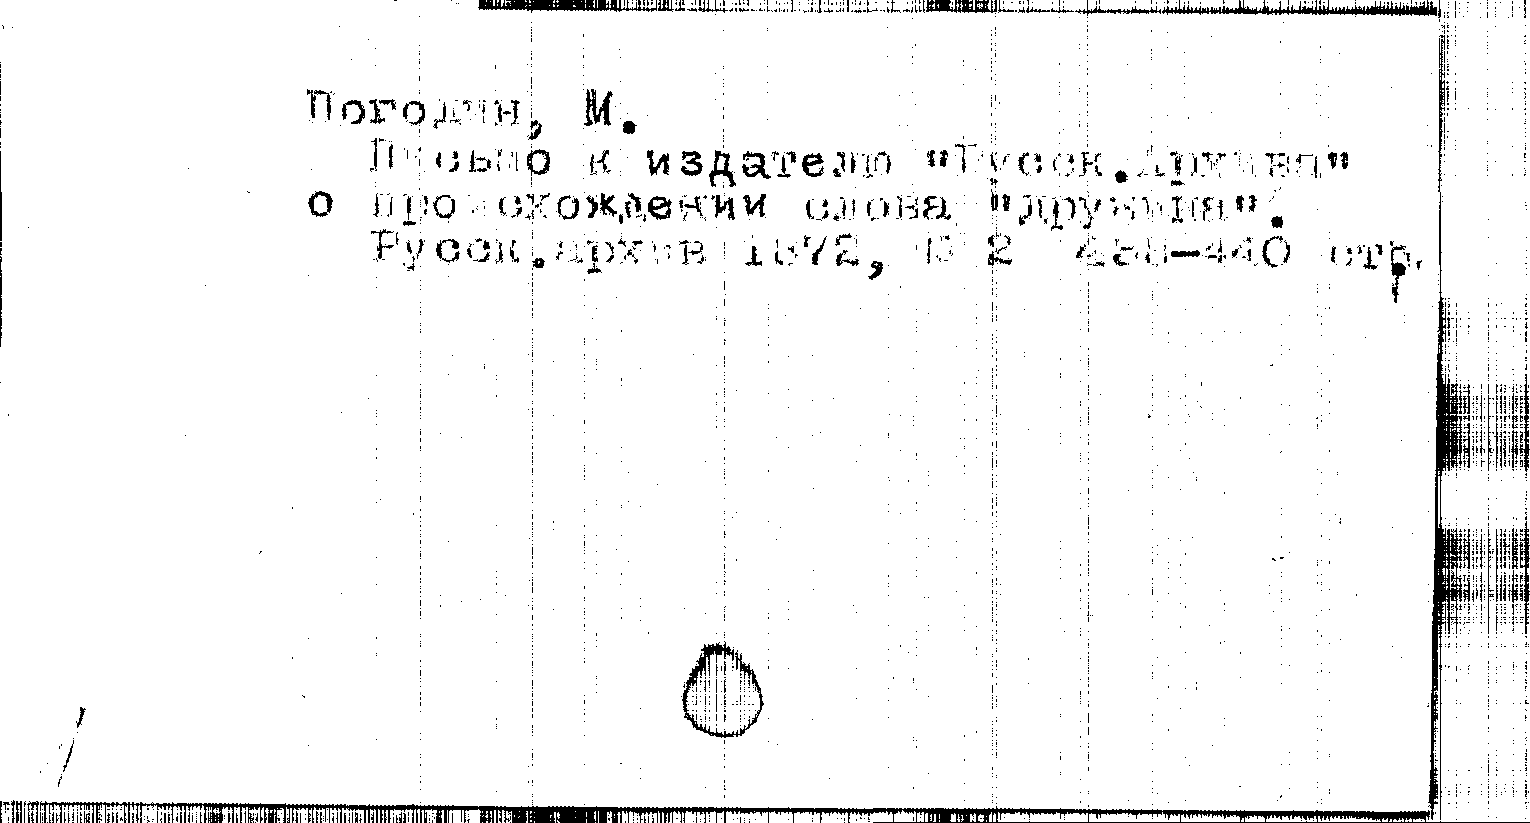 Погодин, М.
Письмо к издателю "Русск.Архива"
о происхождении слова "дружина".
Русск.архив 1872, № 2 438-440 стр.